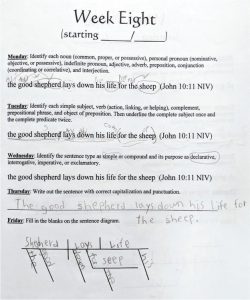 Week Eight
(starting ____/____)
Monday: Identify each noun (common, proper, or possessive), personal pronouns (nominative,
objective, or possessive), indefinite pronoun, adjective, adverb, preposition, conjunction
(coordinating or correlative), and interjection.
the good shepherd lays down his life for the sheep (John 10:11 NIV)
Tuesday: Identify each simple subject, verb (action, linking, or helping), complement,
prepositional phrase, and object of preposition. Then underline the complete subject once and
the complete predicate twice.
the good shepherd lays down his life for the sheep (John 10:11 NIV)
Wednesday: Identify the sentence type as simple or compound and its purpose as declarative,
interrogative, imperative, or exclamatory.
the good shepherd lays down his life for the sheep (John 10:11 NIV)
Thursday: Write out the sentence with correct capitalization and punctuation.
The good shepherd lays down his life for
the sheep.
Friday: Fill in the blanks on the sentence diagram.
shepherd lays life
seep